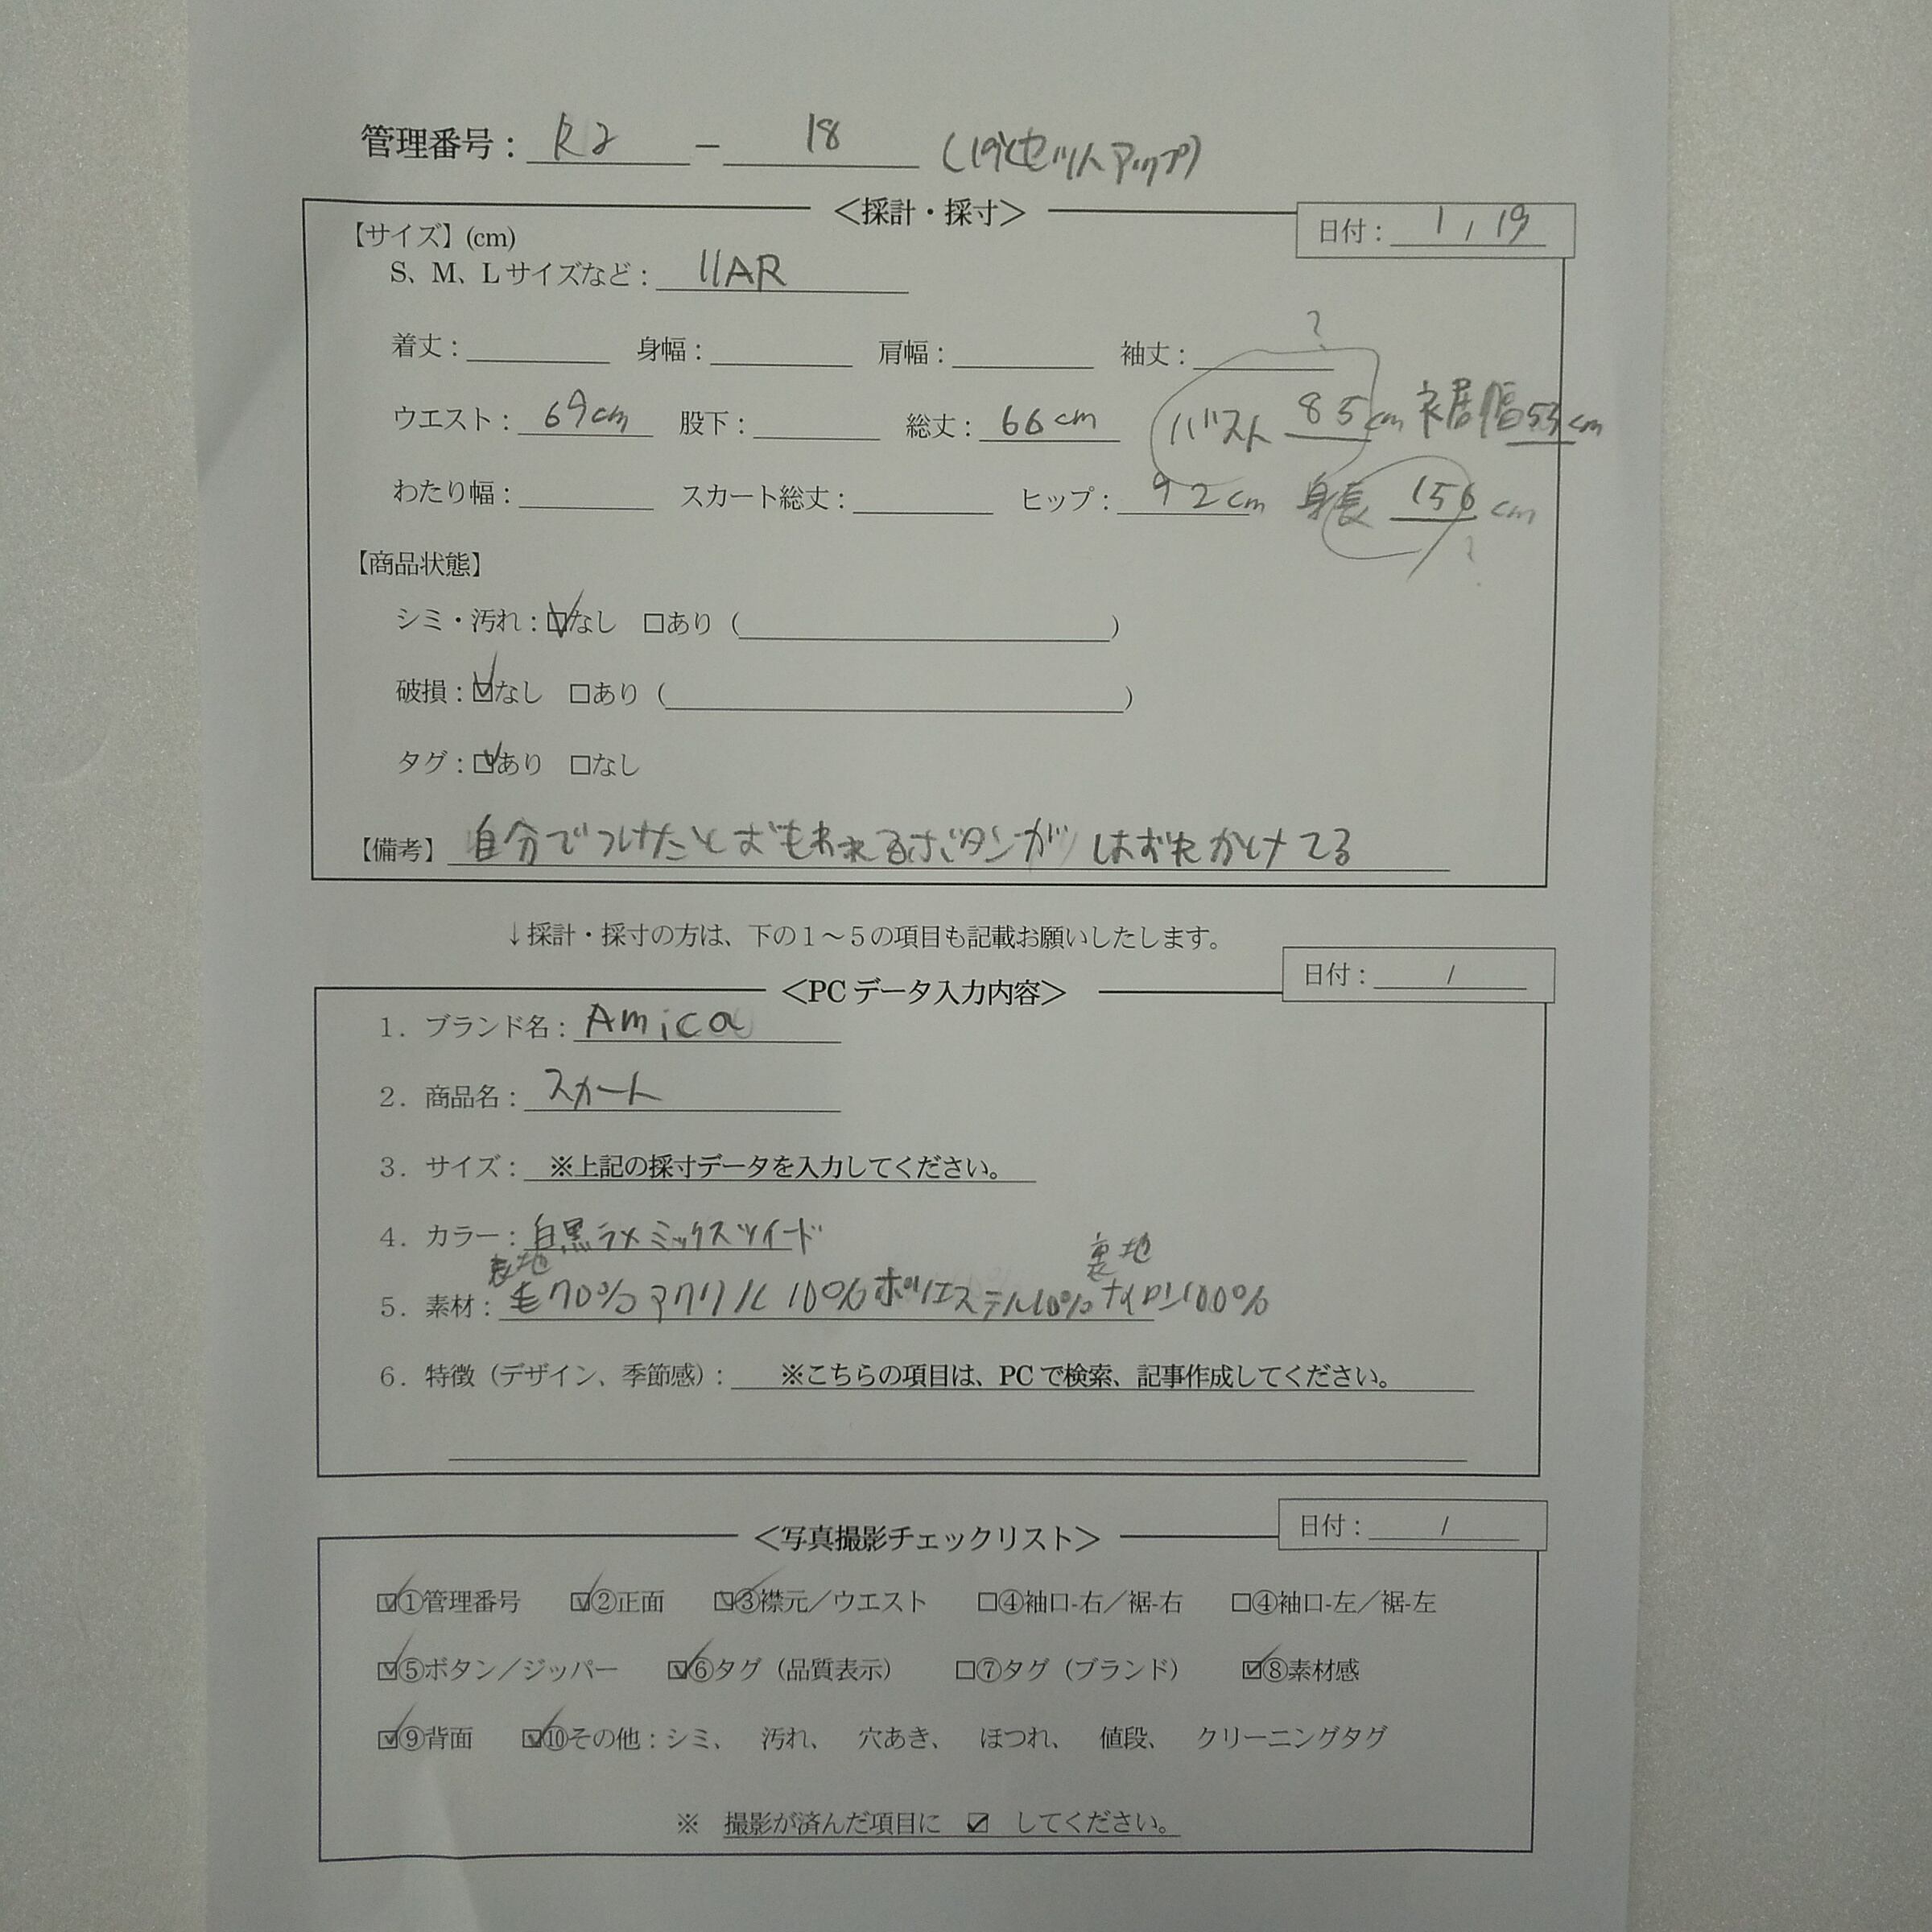 管理番号：R2 － 18 (19とセットアップ)
＜採計・採寸＞
日付：1 / 19
【サイズ】(cm)
S、M、Lサイズなど：11AR
着丈： 身幅： 肩幅： 袖丈： ?
ウエスト：69cm 股下： 総丈：66cm バスト 85cm 裾幅 53cm
わたり幅： スカート総丈： ヒップ：92cm 身長 156cm
?
【商品状態】
シミ・汚れ：☑なし □あり（ ）
破損：☑なし □あり（ ）
タグ：☑あり □なし
【備考】自分でつけたとおもわれるボタンがはずれかけてる
↓採計・採寸の方は、下の１～５の項目も記載お願いしたします。
＜PCデータ入力内容＞
日付： /
1．ブランド名：Amica
2．商品名：スカート
3．サイズ：※上記の採寸データを入力してください。
4．カラー：白黒ラメミックスツイード
表地 裏地
5．素材：毛70%アクリル10%ポリエステル10%ナイロン100%
6．特徴（デザイン、季節感）：※こちらの項目は、PCで検索、記事作成してください。
＜写真撮影チェックリスト＞
日付： /
☑①管理番号 ☑②正面 ☑③襟元／ウエスト □④袖口-右／裾-右 □④袖口-左／裾-左
☑⑤ボタン／ジッパー ☑⑥タグ（品質表示） □⑦タグ（ブランド） ☑⑧素材感
☑⑨背面 ☑⑩その他：シミ、 汚れ、 穴あき、 ほつれ、 値段、 クリーニングタグ
※ 撮影が済んだ項目に ☑ してください。